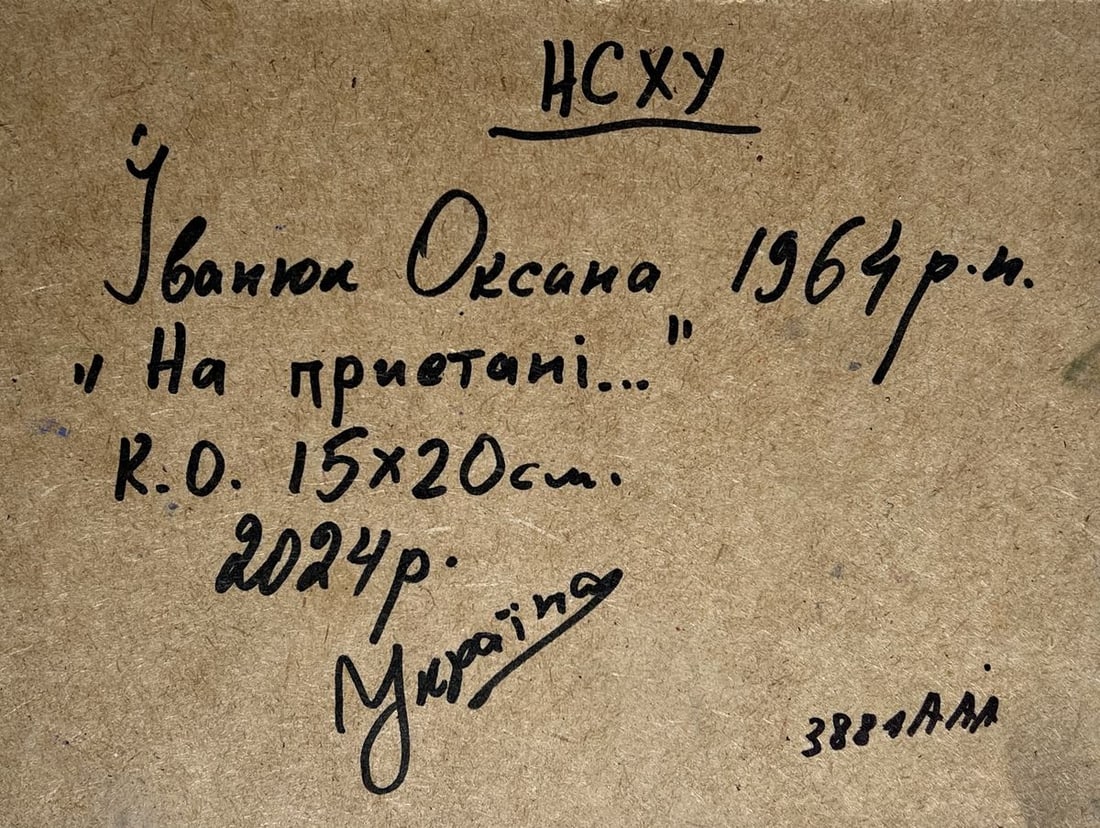 НСХУ
Іванюк Оксана 1964 р.н.
„На пристані..."
К.О. 15х20см.
2024р.
Україна